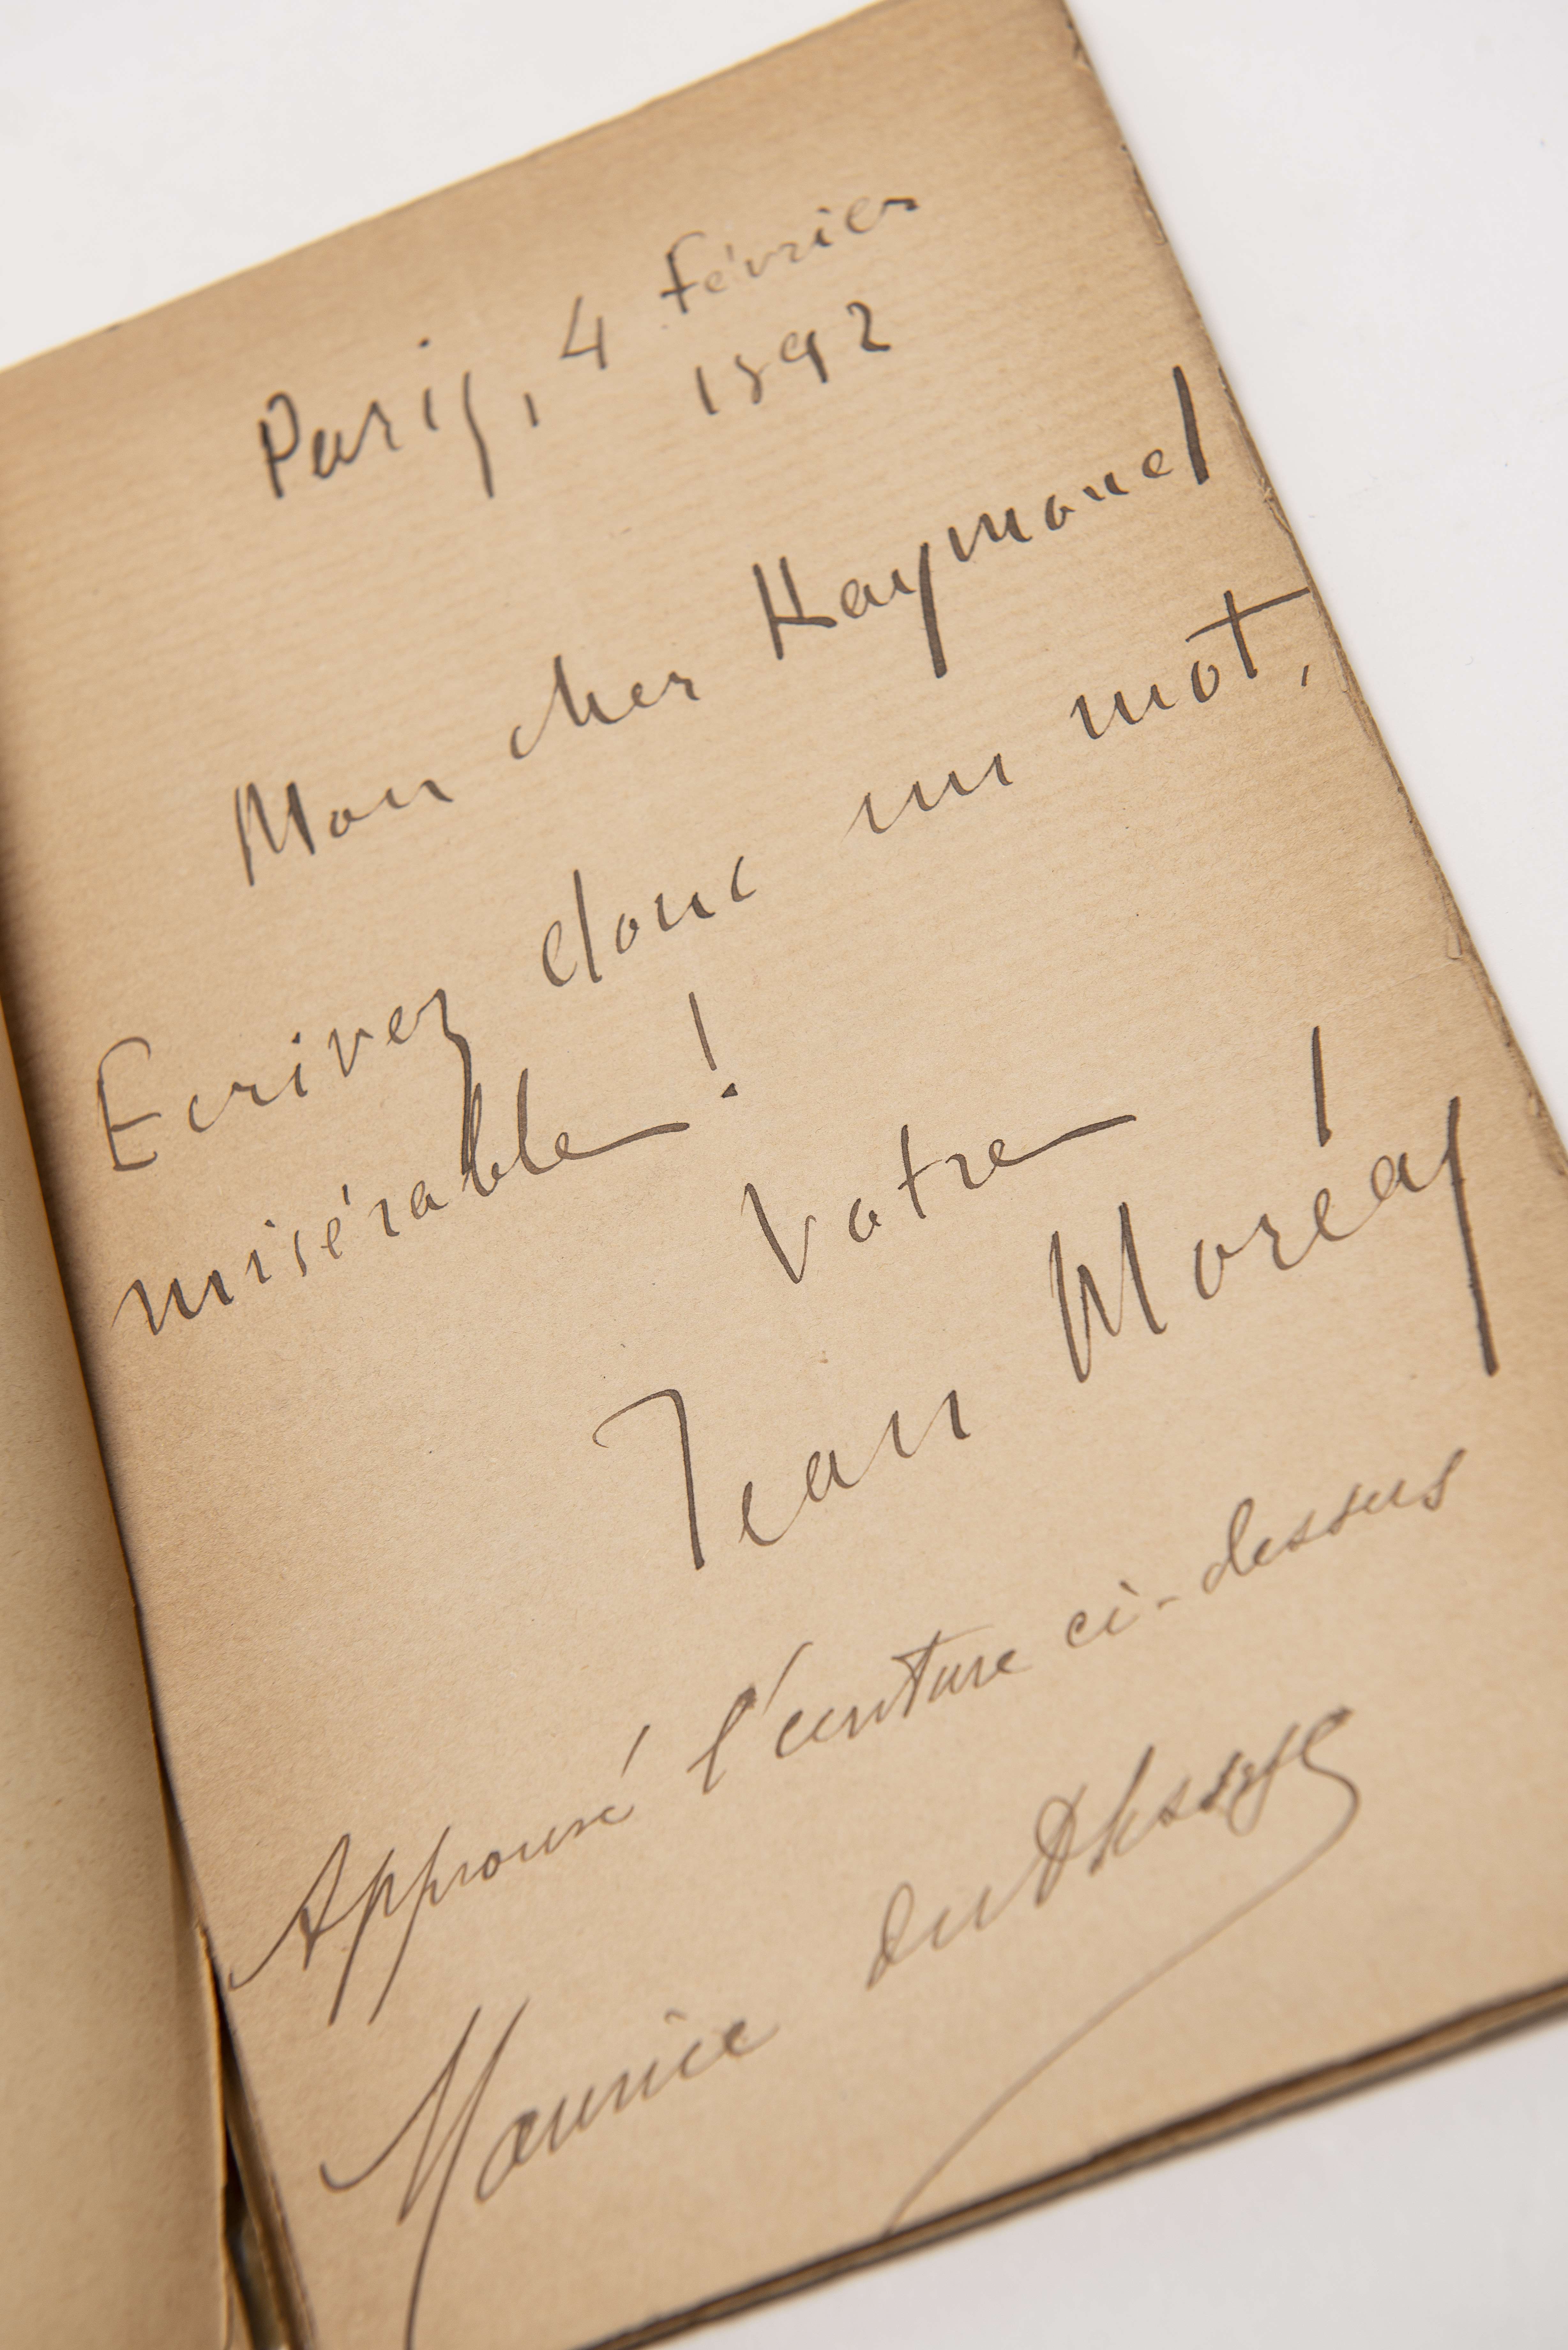 Paris, 4 février
1892
Mon cher Raymond
Ecrivez donc un mot,
misérable !
Votre
Jean Moréas
Approuvé l'écriture ci-dessus
Maurice du Plessys